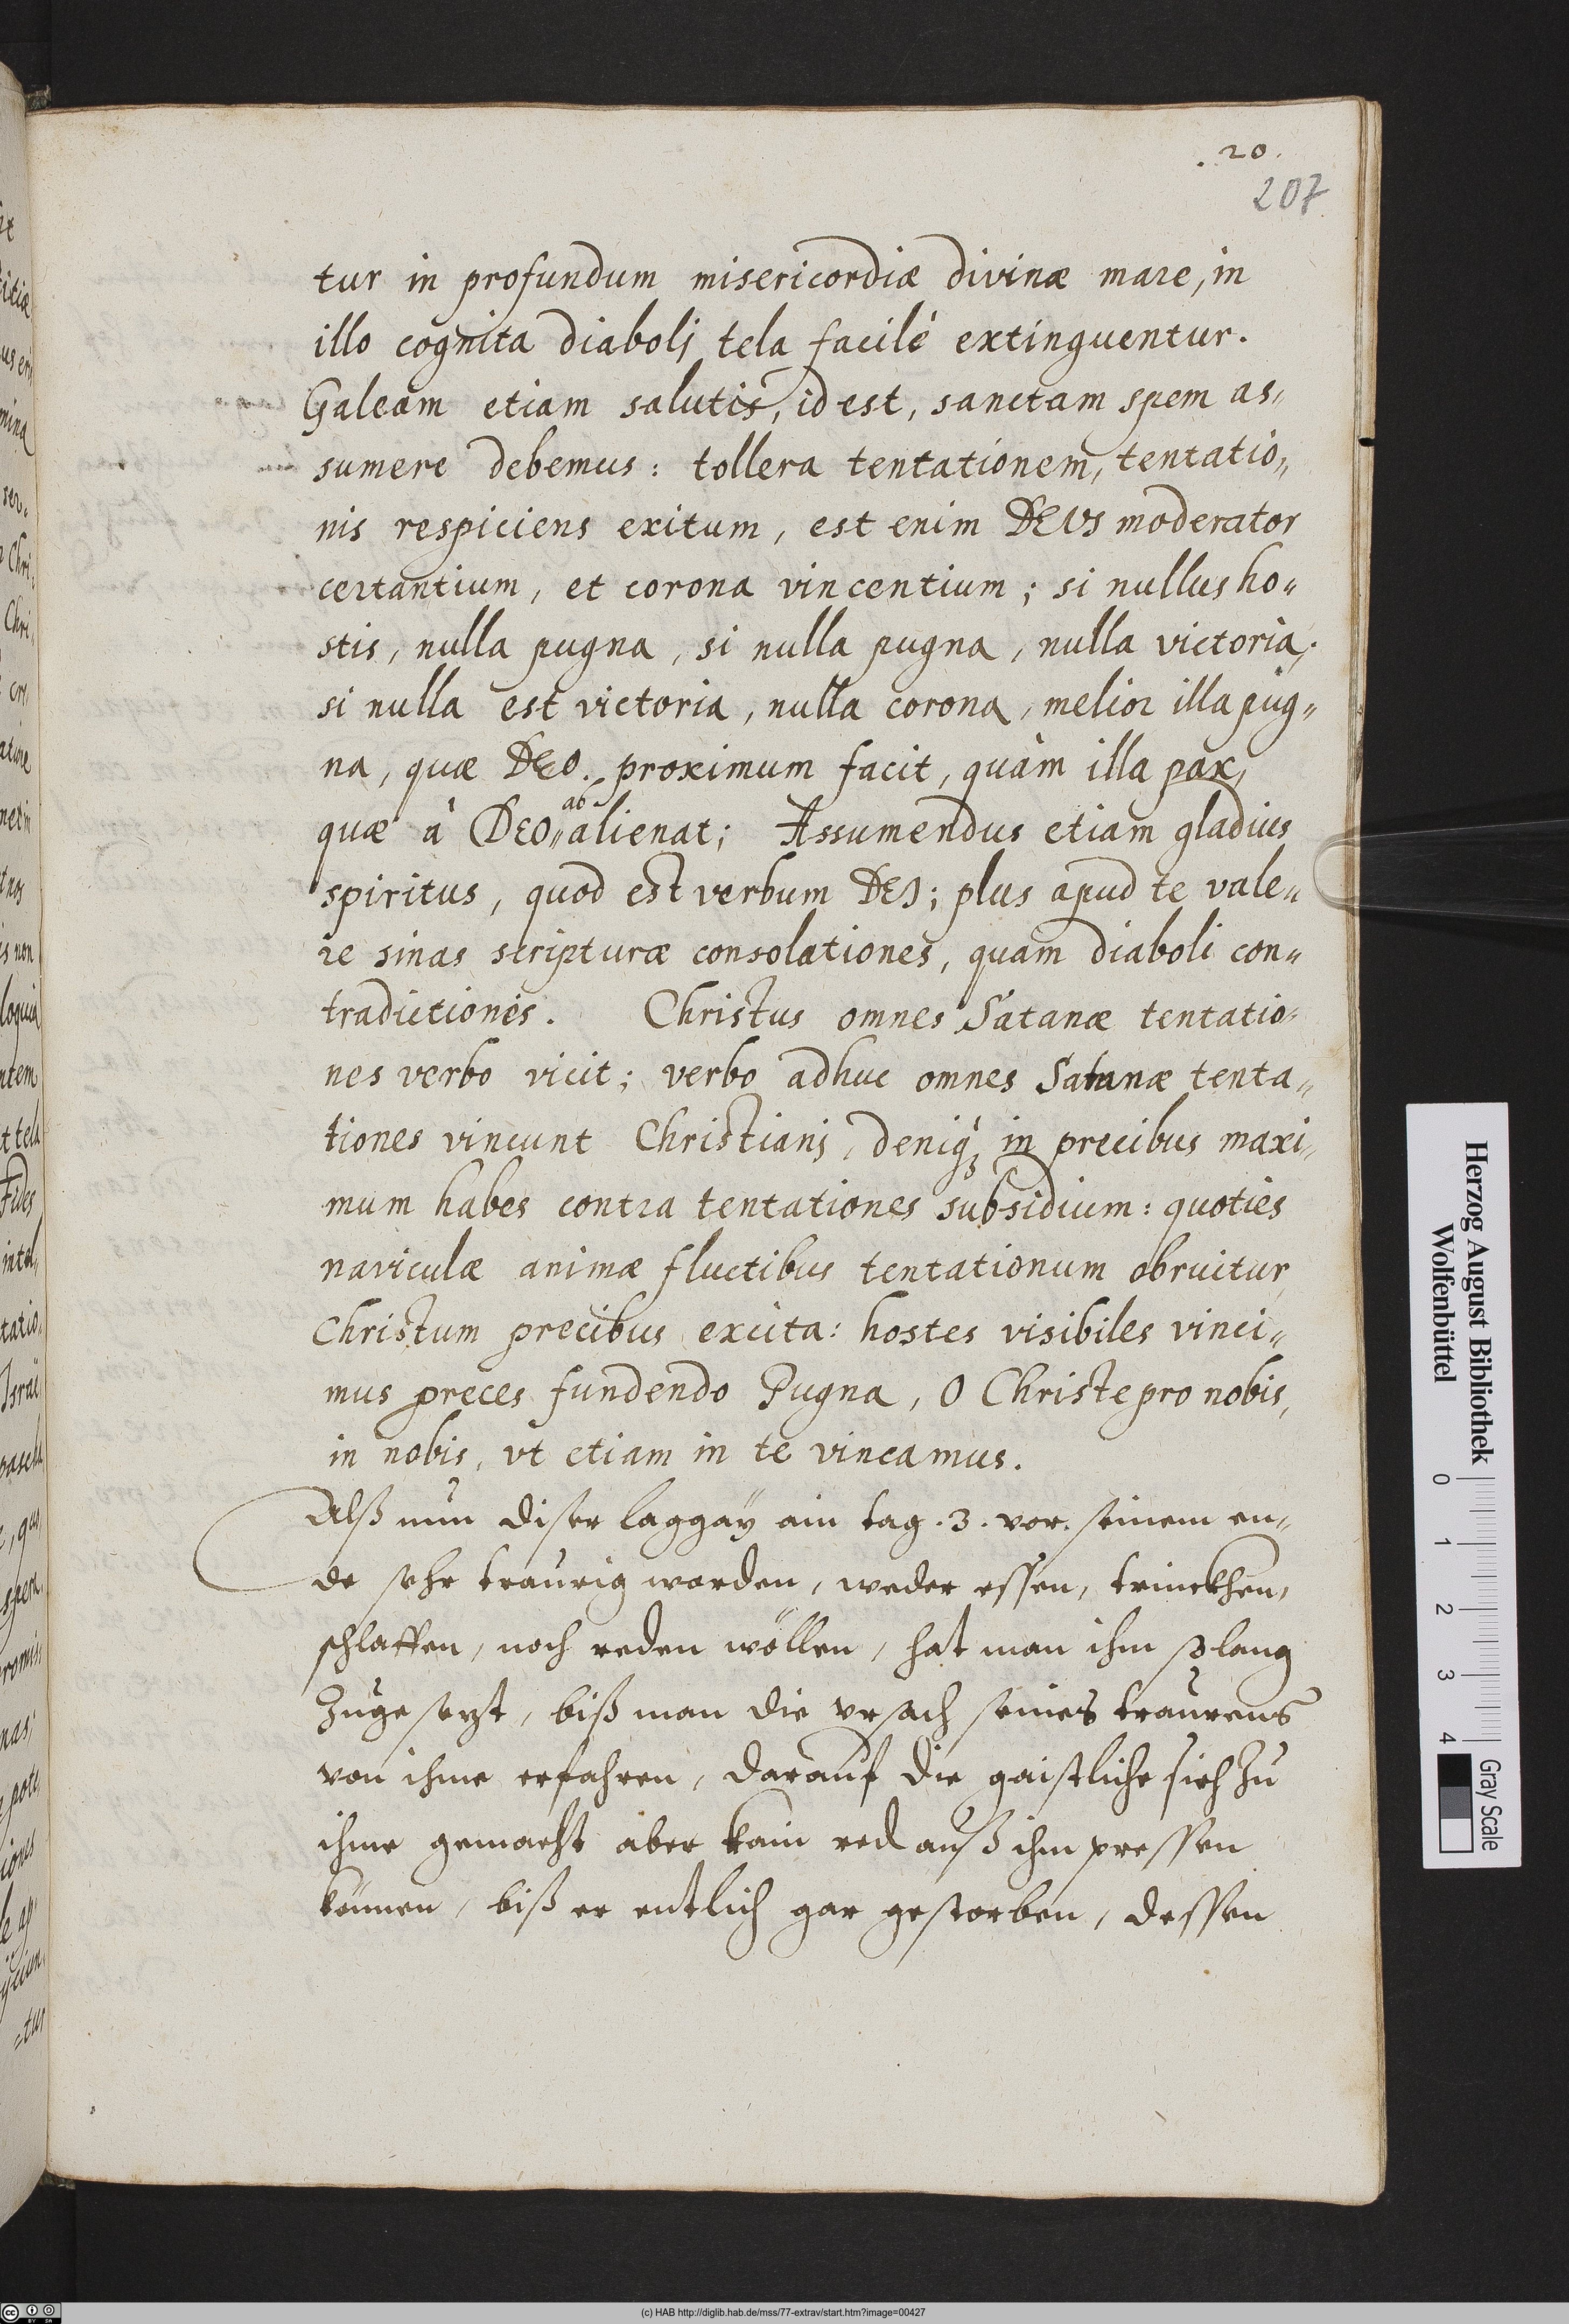 .20.
207
tur in profundum misericordiæ divinæ mare, in
illo cognita diabolj tela facilè extinguentur.
Galeam etiam salutis, id est, sanctam spem as„
sumere debemus: tollera tentationem, tentatio„
nis respiciens exitum, est enim DEUS moderator
certantium, et corona vincentium; si nullus ho„
stis, nulla pugna, si nulla pugna, nulla victoria,
si nulla est victoria, nulla corona, melior illa pug„
na, quæ DEO. proximum facit, quàm illa pax,
quæ à DEO„ ab alienat; Assumendus etiam gladius
spiritus, quod est verbum DEJ; plus apud te vale„
re sinas scripturæ consolationes, quam diaboli con„
tradictiones. Christus omnes Satanæ tentatio„
nes verbo vicit; verbo adhuc omnes Satanæ tenta„
tiones vincunt Christianj, deniqꝫ in precibus maxi„
mum habes contra tentationes subsidium: quoties
naviculæ animæ fluctibus tentationum obruitur,
Christum precibus excita: hostes visibiles vinci„
mus preces fundendo Pugna, O Christe pro nobis,
in nobis, vt etiam in te vincamus.
Alß nun diser laggaÿ ain tag .3. vor. seinem en„
de sehr traurig worden, weder essen, trinckhen,
schlaffen, noch reden wöllen, hat man ihm so lang
Zugesezt, biß man die vrsach seines traurens
von ihme erfahren, darauf die gaistliche sich Zu
ihme gemacht aber kain red auß ihm pressen
können, biß er entlich gar gestorben, dessen
Herzog August Bibliothek
Wolfenbüttel
0 1 2 3 4
Gray Scale
(c) HAB http://diglib.hab.de/mss/77-extrav/start.htm?image=00427